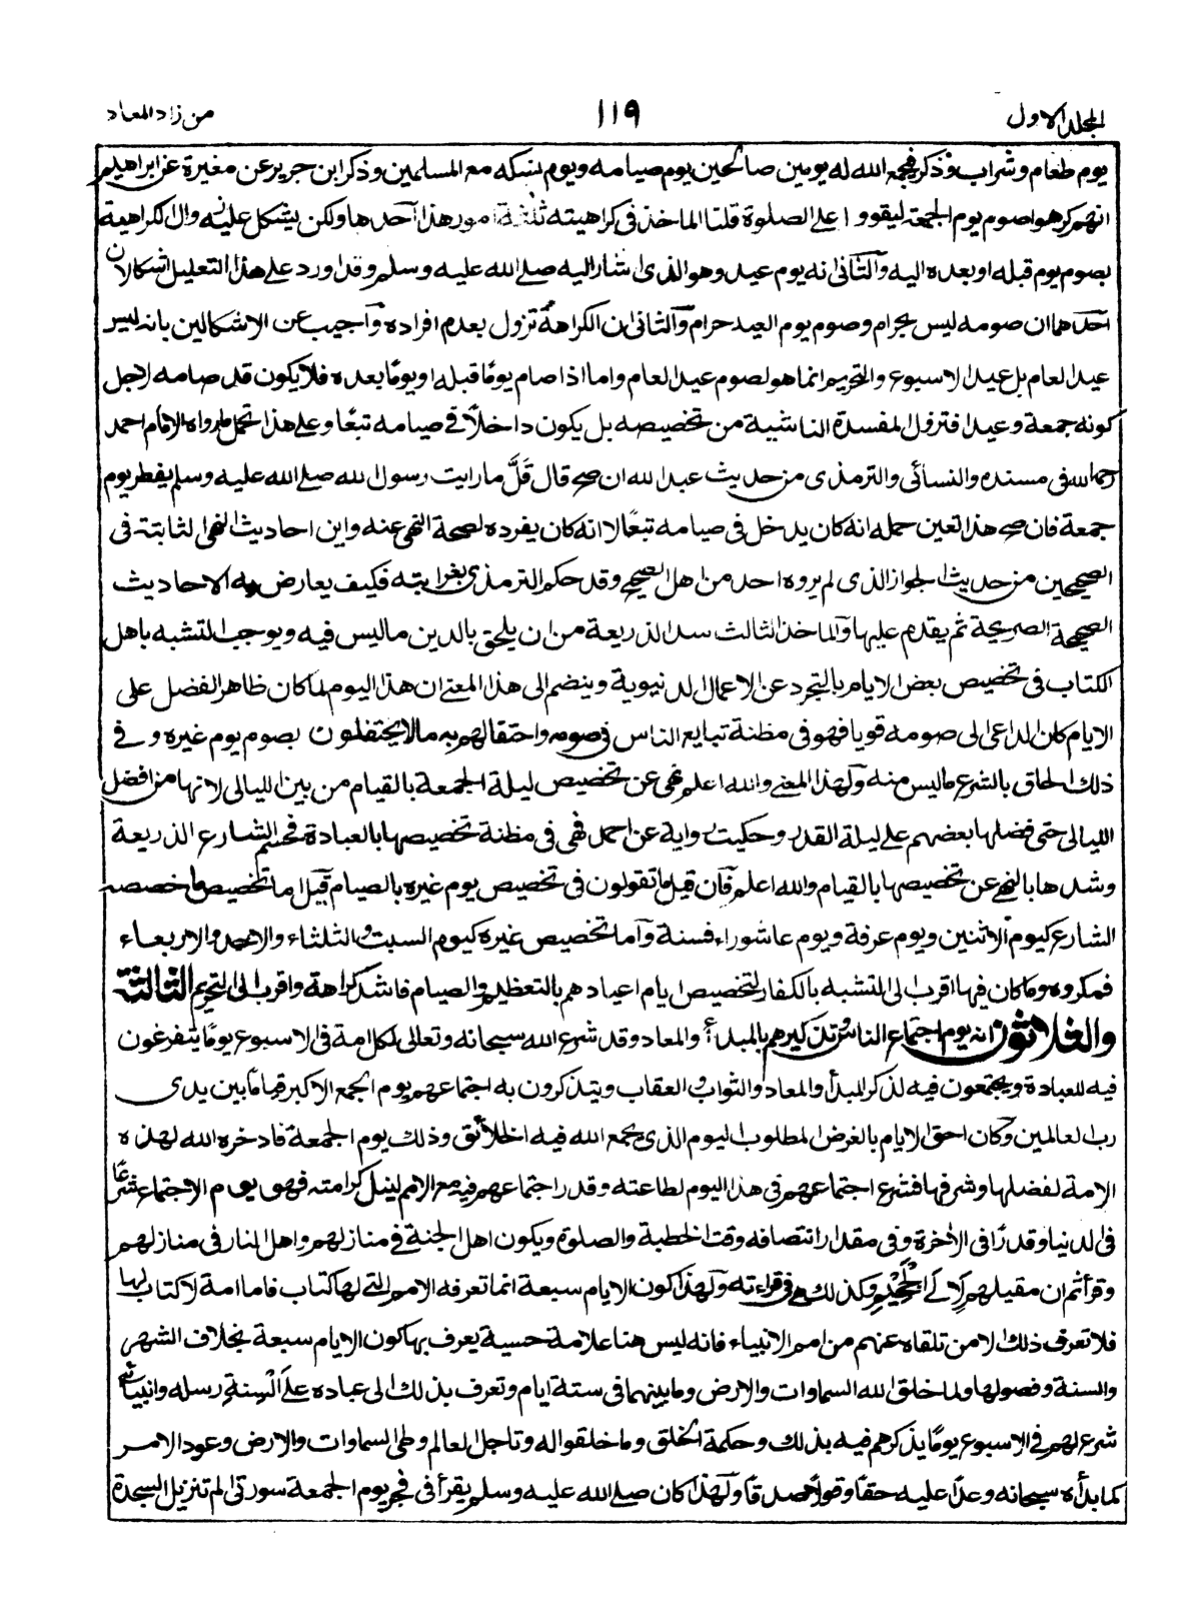 المجلد الاول
١١٩
من زاد المعاد
يوم طعام وشراب وذكر فيجمع الله له يومين صالحين يوم صيامه ويوم نسكه مع المسلمين وذكر ابن جرير عن مغيرة عن ابراهيم
انهم كرهوا صوم يوم الجمعة ليقووا على الصلوة قلنا الماخذ فى كراهيته ثلثة امور هذا احدها ولكن يشكل عليه زوال الكراهية
بصوم يوم قبله او بعده اليه والثانى انه يوم عيد وهو الذى اشار اليه صلى الله عليه وسلم وقد اورد على هذا التعليل اشكالان
احدهما ان صومه ليس بحرام وصوم يوم العيد حرام والثانى ان الكراهة تزول بعدم افراده واجيب عن الاشكالين بانه ليس
عيد العام بل عيد الاسبوع والتحريم انما هو لصوم عيد العام واما اذا صام يومًا قبله او يومًا بعده فلا يكون قد صامه لاجل
كونه جمعة وعيدا فتزول المفسدة الناشية من تخصيصه بل يكون داخلًا فى صيامه تبعًا وعلى هذا تحمل ما رواه الامام احمد
رحمه الله فى مسنده والنسائى والترمذى من حديث عبد الله ان صح قال قَلَّ ما رايت رسول الله صلى الله عليه وسلم يفطر يوم
جمعة فان صح هذا تعين حمله انه كان يدخل فى صيامه تبعًا لا انه كان يفرده لصحة النهى عنه واين احاديث النهى الثابتة فى
الصحيحين من حديث الجواز الذى لم يروه احد من اهل الصحيح وقد حكم الترمذى بغرابته فكيف يعارض به الاحاديث
الصحيحة الصريحة ثم يقدم عليها والماخذ الثالث سد الذريعة من ان يلحق بالدين ما ليس فيه ويوجب التشبه باهل
الكتاب فى تخصيص بعض الايام بالتجرد عن الاعمال الدنيوية وينضم الى هذا المعنى ان هذا اليوم لما كان ظاهر الفضل على
الايام كان الداعى الى صومه قويا فهو فى مظنة تبايع الناس فى صومه واحتفالهم به ما لا يحتفلون بصوم يوم غيره و فى
ذلك الحاق بالشرع ما ليس منه ولهذا المعنى والله اعلم نهى عن تخصيص ليلة الجمعة بالقيام من بين الليالى لانها من افضل
الليالى حتى فضلها بعضهم على ليلة القدر وحكيت رواية عن احمد فهى فى مظنة تخصيصها بالعبادة فحسم الشارع الذريعة
وسدها بالنهى عن تخصيصها بالقيام والله اعلم فان قيل ما تقولون فى تخصيص يوم غيره بالصيام قيل اما تخصيص ما خصصه
الشارع كيوم الاثنين ويوم عرفة ويوم عاشوراء فسنة واما تخصيص غيره كيوم السبت والثلثاء والاحد والاربعاء
فمكروه وما كان فيها اقرب الى التشبه بالكفار لتخصيص ايام اعيادهم بالتعظيم والصيام فاشد كراهة واقرب الى التحريم الثالثة
والثلاثون انه يوم اجتماع الناس وتذكيرهم بالمبدأ والمعاد وقد شرع الله سبحانه وتعالى لكل امة فى الاسبوع يومًا يتفرغون
فيه للعبادة ويجتمعون فيه لذكر المبدأ والمعاد والثواب والعقاب ويتذكرون به اجتماعهم يوم الجمع الاكبر قيامًا بين يدى
رب العالمين وكان احق الايام بالغرض المطلوب اليوم الذى يجمع الله فيه الخلائق وذلك يوم الجمعة فادخره الله لهذه
الامة لفضلها وشرفها فشرع اجتماعهم فى هذا اليوم لطاعته وقدر اجتماعهم فيه مع الامم لنيل كرامته فهو يوم الاجتماع شرعًا
فى الدنيا وقدرًا فى الاخرة وفى مقدار انتصافه وقت الخطبة والصلوة ويكون اهل الجنة فى منازلهم واهل النار فى منازلهم
وقرأ ثم ان مقيلهم لَاِلَى الْجَحِيْمِ وكذلك هى فى قراءته ولهذا كون الايام سبعة انما تعرفه الامم التى لها كتاب فاما امة لا كتاب لها
فلا تعرف ذلك الا من تلقاه عنهم من امم الانبياء فانه ليس هنا علامة حسية يعرف بها كون الايام سبعة بخلاف الشهر
والسنة وفصولها ولما خلق الله السماوات والارض وما بينهما فى ستة ايام وتعرف بذلك الى عباده على اَلْسِنة رسله وانبيائه
شرع لهم فى الاسبوع يومًا يذكرهم فيه بذلك وحكمة الخلق وما خلقوا له وتاجل العالم وطى السماوات والارض وعود الامر
كما بدأه سبحانه وعدًا عليه حقًا وقولًا صدقًا ولهذا كان صلى الله عليه وسلم يقرأ فى فجر يوم الجمعة سورتى الم تنزيل السجدة